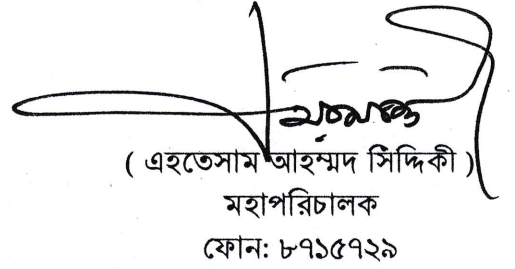 ( এহতেসাম আহম্মদ সিদ্দিকী )
মহাপরিচালক
ফোন: ৮৭১৫৭২৯